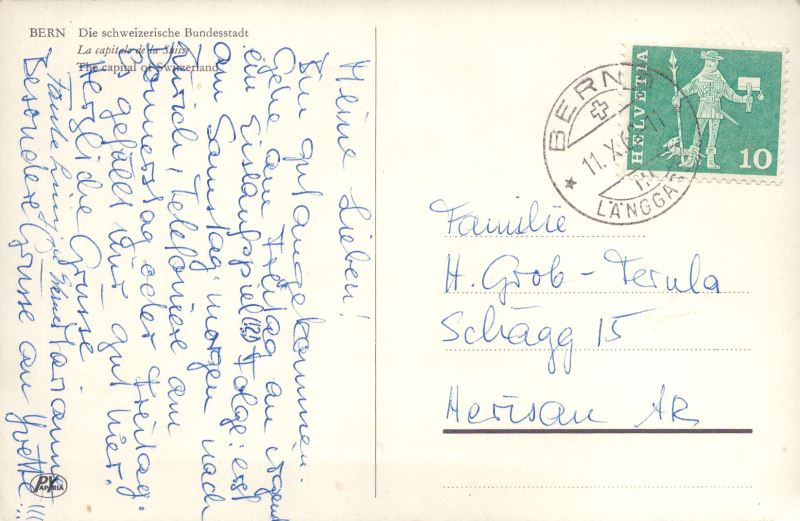 BERN Die schweizerische Bundesstadt
La capitale de la Suisse
The capital of Switzerland
Meine Lieben!
Bin gut angekommen.
Gehe am Freitag an irgend
ein Eislaufspiel Folge: erst
am Samstag morgen nach
Zürich, Telefoniere am
Donnerstag oder Freitag.
Es gefällt mir gut hier!
Herzliche Grüsse
Marianne
Besondere Grüsse an Yvette!!!
PV
PAPERIA
HELVETIA
10
BERN
11.X.6
LÄNGGAS
Familie
H. Grob-Ferula
Schägg 15
Herisau AR